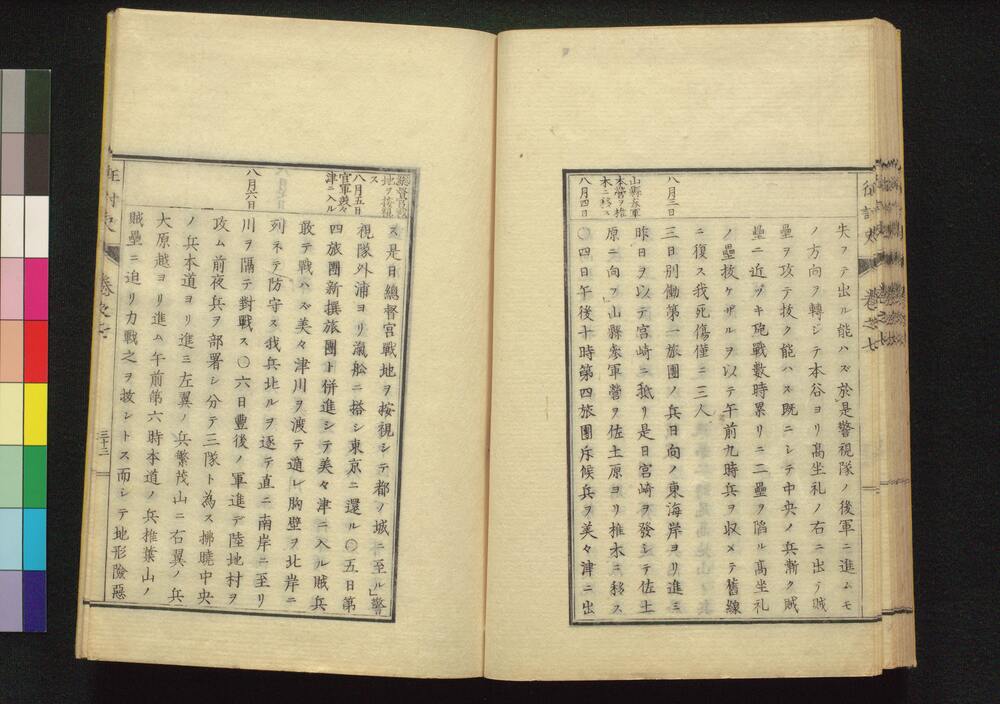 征討史
卷之七
失フテ出ル能ハズ於是警視隊ノ後軍ニ進ムモ
ノ方向ヲ轉シテ本谷ヨリ髙坐礼ノ右ニ出テ賊
壘ヲ攻テ拔ク能ハス既ニシテ中央ノ兵漸ク賊
壘ニ近ヅキ砲戰數時累リニ二壘ヲ陷ル髙坐礼
ノ壘拔ケザルヲ以テ午前九時兵ヲ収メテ舊線
ニ復ス我死傷僅ニ三人
八月三日
三日別働第一旅團ノ兵日向ノ東海岸ヨリ進ミ
昨日ヲ以テ宮崎ニ抵リ是日宮崎ヲ發シテ佐土
山縣参軍
本營ヲ推
木ニ移ス
原ニ向フ」山縣參軍營ヲ佐土原ヨリ推木ニ移ス
八月四日
〇四日午後十時第四旅團斥候兵ヲ美々津ニ出
総督官戰
地ヲ按視
ス
ス是日總督官戰地ヲ按視シテ都ノ城ニ至ル」警
八月五日
視隊外浦ヨリ瀛舩ニ搭シ東京ニ還ル〇五日第
官軍美々
津ニ入ル
四旅團新撰旅團ト併進シテ美々津ニ入ル賊兵
敢テ戰ハズ美々津川ヲ渡テ遁レ胸壁ヲ北岸ニ
列ネテ防守ス我兵北ルヲ逐テ直ニ南岸ニ至リ
八月六日
川ヲ隔テ對戰ス〇六日豊後ノ軍進デ陸地村ヲ
攻ム前夜兵ヲ部署シ分テ三隊ト為ス拂曉中央
ノ兵本道ヨリ進ミ左翼ノ兵繁茂山ニ右翼ノ兵
大原越ヨリ進ム午前第六時本道ノ兵推葉山ノ
賊壘ニ迫リ力戰之ヲ拔シトス而シテ地形險惡
征討史
卷之七
三十三